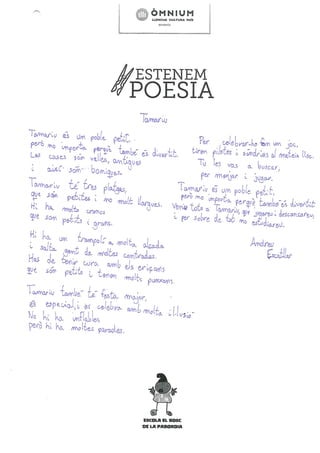 ÒMNIUM
LLENGUA CULTURA PAÍS
ESTENEM
POESIA
Tamariu
Tamariu és un poble petit,
però no importa perquè també és divertit.
Les cases són velles, antigues
i així són boniques.
Tamariu té tres platges,
que són petites i no molt llargues.
Hi ha molts crancs
que son petits i grans.
Hi ha un trampolí a molta alçada
i salta gent de moltes contrades.
Has de tenir cura amb els eriçons
que són petits i tenen molts punxons.
Tamariu també té festa major,
és especial i es celebra amb molta il·lusió
No hi ha inflables
però hi ha moltes parades.
Per celebrar-ho fem un joc,
tiren pilotes i síndries al mateix lloc.
Tu les vas a buscar,
per menjar i jugar.
Tamariu és un poble petit,
però no importa perquè també és divertit
Veniu tots a Tamariu que jugareu i descansareu
i per sobre de tot no estudiareu.
Andreu
ESCOLA EL BOSC
DE LA PABORDIA